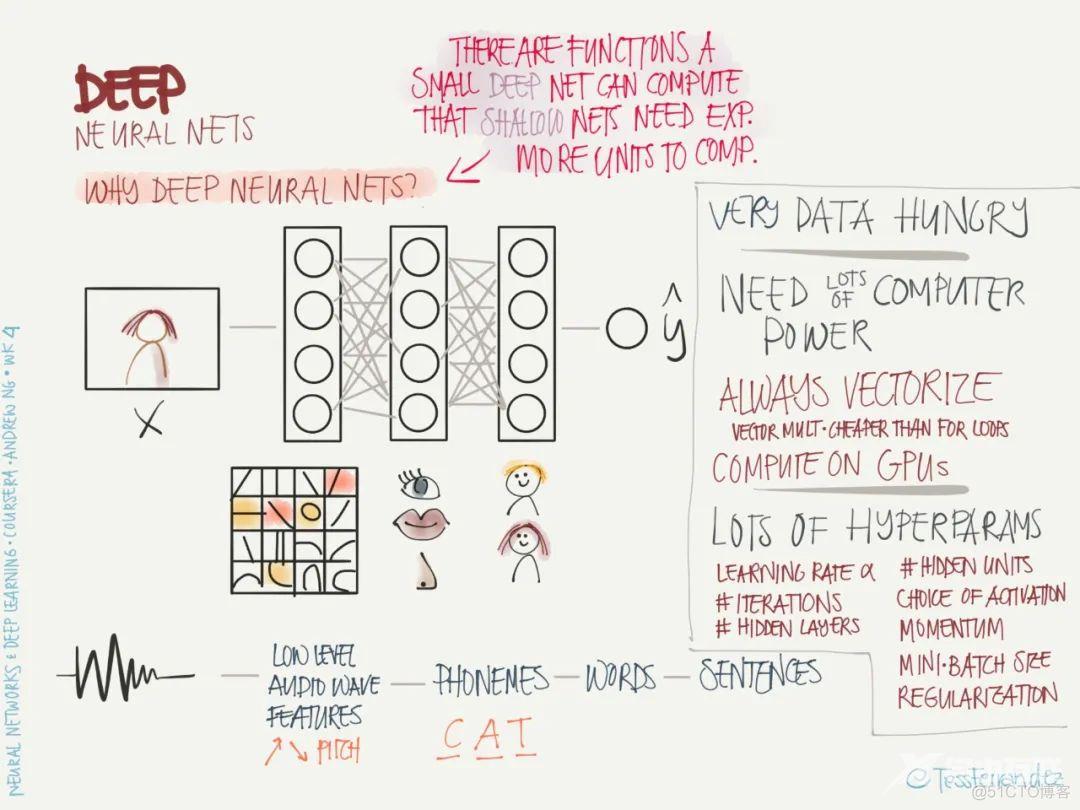 DEEP
NEURAL NETS
WHY DEEP NEURAL NETS?
THERE ARE FUNCTIONS A
SMALL DEEP NET CAN COMPUTE
THAT SHALLOW NETS NEED EXP.
MORE UNITS TO COMP.
X
ŷ
LOW LEVEL
AUDIO WAVE
FEATURES
↗↘ PITCH
PHONEMES
C A T
WORDS
SENTENCES
VERY DATA HUNGRY
NEED LOTS OF COMPUTER
POWER
ALWAYS VECTORIZE
VECTOR MULT. CHEAPER THAN FOR LOOPS
COMPUTE ON GPUs
LOTS OF HYPERPARAMS
LEARNING RATE α
# ITERATIONS
# HIDDEN LAYERS
# HIDDEN UNITS
CHOICE OF ACTIVATION
MOMENTUM
MINI-BATCH SIZE
REGULARIZATION
NEURAL NETWORKS & DEEP LEARNING · COURSERA · ANDREW NG · WK 4
@TessFerrandez
@51CTO博客